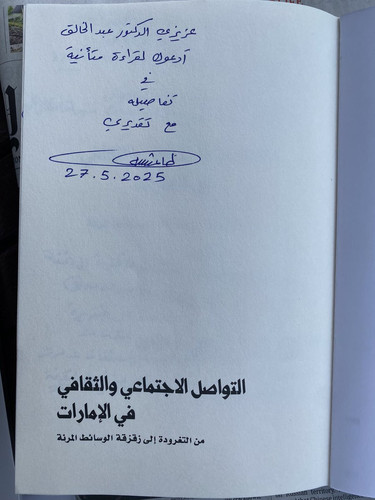 عزيزي الدكتور عبد الخالق
أدعوك لقراءة متأنية
في
تفاصيله
مع تقديري
27.5.2025
التواصل الاجتماعي والثقافي
في الإمارات
من التغرودة إلى زقزقة الوسائط المرنة